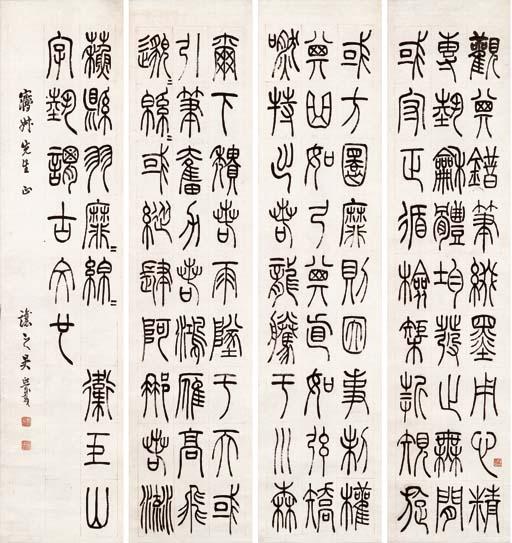 觀其錯筆綴墨用心精
專埶龢體均發止無間
或守正循檢榘折規旋
或方圓靡則因事制權
其曲如弓其直如弦矯
然特出若龍騰于川森
爾下穨若雨墜于天或
引筆奮力若鴻雁高飛
邈〻翩〻或縱肆阿那若流
蘇縣羽靡〻綿〻 衛巨山
字埶謂古文也
先生正 讓之吳熙載